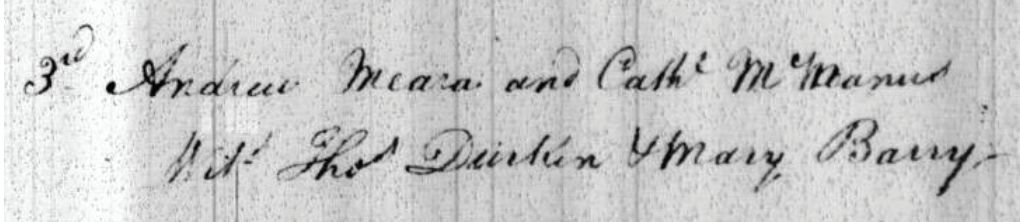 3rd Andrew Meara and Cathe McManus
Wits Thos Durken & Mary Barry